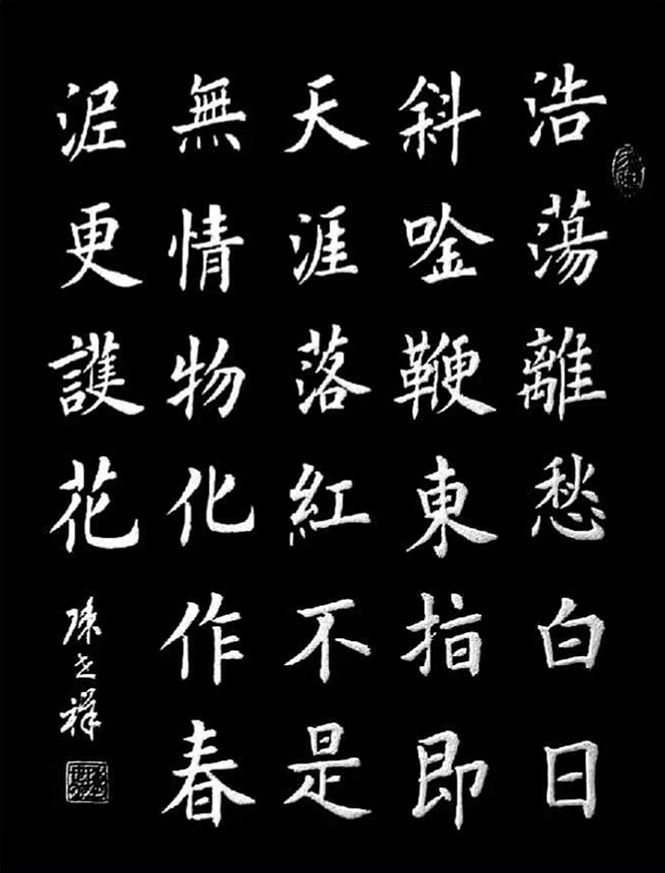 浩蕩離愁白日
斜唫鞭東指即
天涯落紅不是
無情物化作春
泥更護花